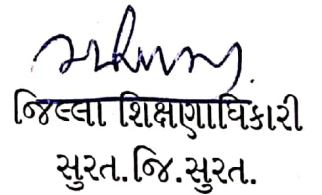 જિલ્લા શિક્ષણાધિકારી
સુરત.જિ.સુરત.